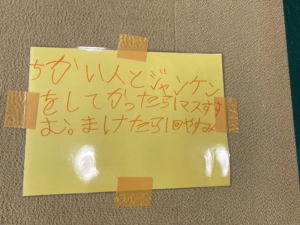 ちかい人とジャンケン
をしてかったら1マスすす
む。まけたら1回やすみ